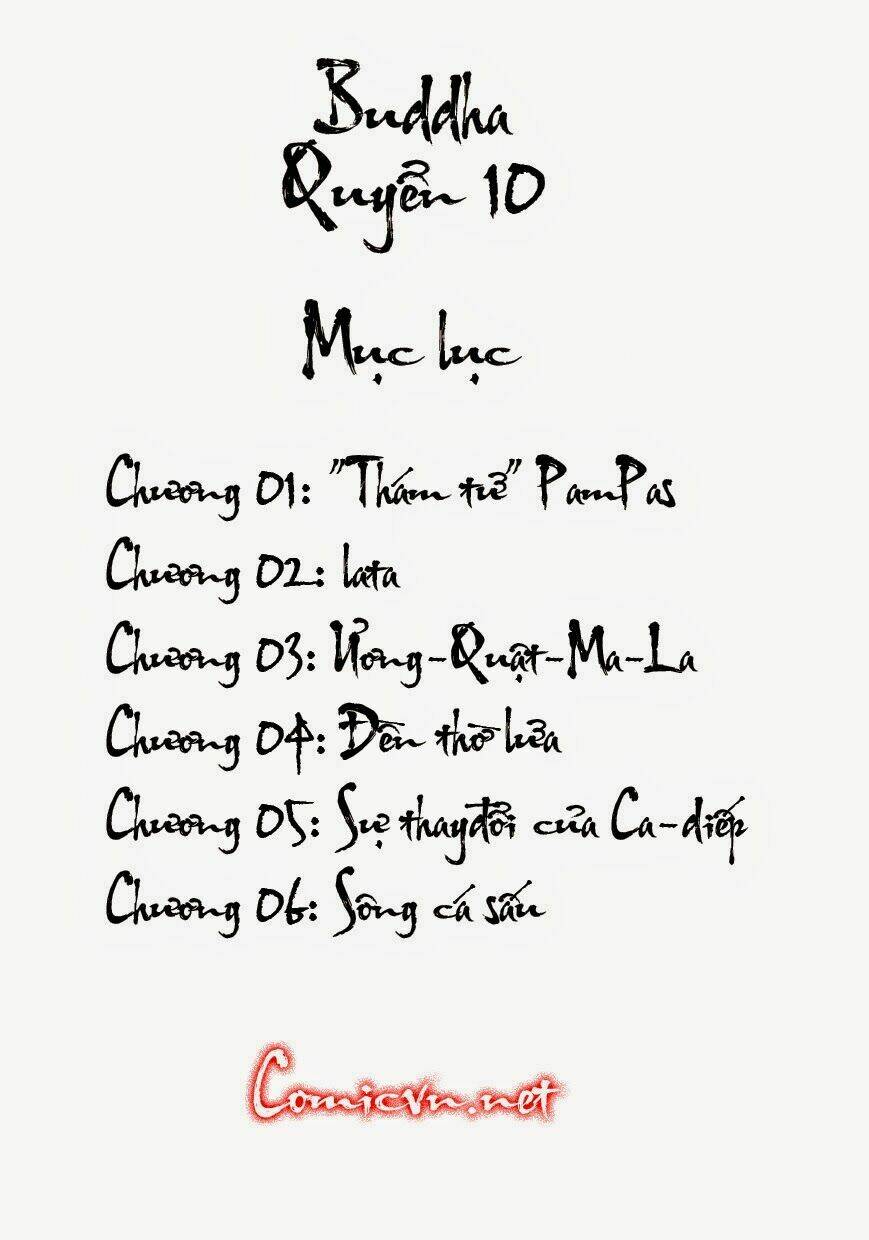 Buddha
Quyển 10
Mục lục
Chương 01: "Thám tử" PamPas
Chương 02: lata
Chương 03: Ương-Quật-Ma-La
Chương 04: Đền thờ lửa
Chương 05: Sự thayđổi của Ca-diếp
Chương 06: Sông cá sấu
Comicvn.net